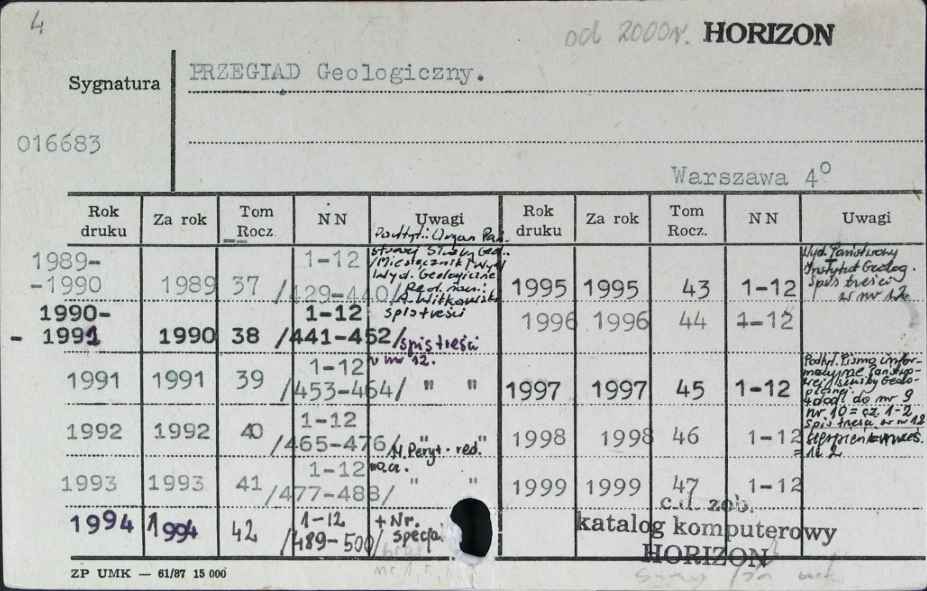 4
od 2000r. HORIZON
Sygnatura PRZEGIAD Geologiczny.
016683
Warszawa 4°
Rok druku Za rok Tom Rocz. NN Uwagi Rok druku Za rok Tom Rocz. NN Uwagi
1989-
-1990 1989 37 1-12 /429-440/
Podtyt.: Organ Pań-
stwowej Służby Geol.
/Miesięcznik/ Wyd.
Wyd. Geologiczne
Red. nacz.:
A. Witkowski
spis treści
1990-
- 1991 1990 38 1-12 /441-452/ spis treści
w nr 12.
1991 1991 39 1-12 /453-464/ " "
1992 1992 40 1-12 /465-476/ " "
N. Peryt. red.
nacz.
1993 1993 41 1-12 /477-488/ " "
1994 1994 42 1-12 /489-500/ + Nr.
specjal
1995 1995 43 1-12
Wyd. Państwowy
Instytut Geolog.
Spis treści
w nr 12
1996 1996 44 1-12
1997 1997 45 1-12
Podtyt. Pismo infor-
macyjne Państwo-
wej Służby Geolo-
gicznej
do nr 9
nr 10 = cz. 1-2
spis treści w nr 12
1998 1998 46 1-12
1999 1999 47 1-12
c.d. zob.
katalog komputerowy
HORIZON
ZP UMK — 61/87 15 000